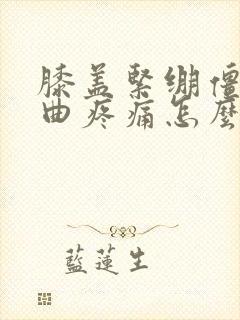 膝盖緊绷僵
曲疼痛怎麼
藍蓮生